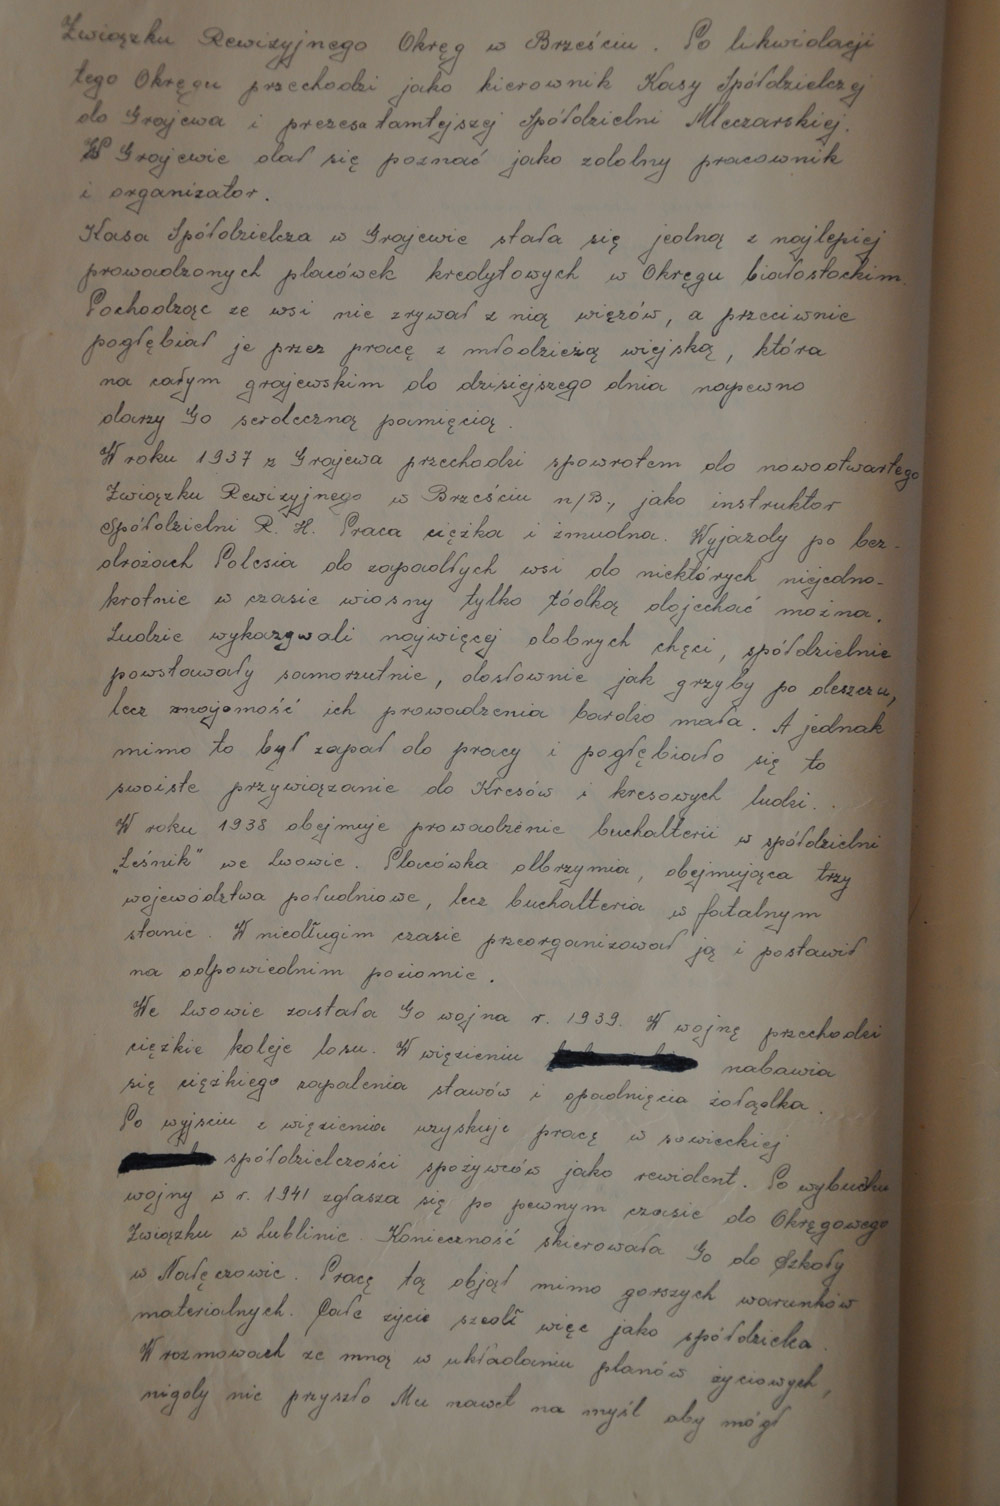 Związku Rewizyjnego Okręg w Brześciu. Po likwidacji
tego Okręgu przechodzi jako kierownik Kasy Spółdzielczej
do Grajewa i prezesa tamtejszej Spółdzielni Mleczarskiej.
W Grajewie dał się poznać jako zdolny pracownik
i organizator.
Kasa Spółdzielcza w Grajewie stała się jedną z najlepiej
prowadzonych placówek kredytowych w Okręgu białostockim.
Pochodząc ze wsi nie zrywał z nią więzów, a przeciwnie
pogłębiał je przez pracę z młodzieżą wiejską, która
na całym grajewskim do dzisiejszego dnia napewno
darzy Go serdeczną pamięcią.
W roku 1937 z Grajewa przechodzi spowrotem do nowootwartego
Związku Rewizyjnego w Brześciu n/B., jako instruktor
Spółdzielni R. H. Praca ciężka i żmudna. Wyjazdy po bez-
drożach Polesia do zapadłych wsi do niektórych niejedno-
krotnie w czasie wiosny tylko łódką dojechać można.
Ludzie wykazywali najwięcej dobrych chęci, spółdzielnie
powstawały samorzutnie, dosłownie jak grzyby po deszczu,
lecz znajomość ich prowadzenia bardzo mała. A jednak
mimo to był zapał do pracy i pogłębiało się to
swoiste przywiązanie do Kresów i kresowych ludzi.
W roku 1938 obejmuje prowadzenie buchalterii w spółdzielni
„Leśnik" we Lwowie. Placówka olbrzymia, obejmująca trzy
województwa południowe, lecz buchalteria w fatalnym
stanie. W niedługim czasie przeorganizował ją i postawił
na odpowiednim poziomie.
We Lwowie zastała Go wojna r. 1939. W wojnę przechodzi
ciężkie koleje losu. W więzieniu nabawia
się ciężkiego zapalenia stawów i opadnięcia żołądka.
Po wyjściu z więzienia uzyskuje pracę w sowieckiej
spółdzielczości spożywców jako rewident. Po wybuchu
wojny w r. 1941 zgłasza się po pewnym czasie do Okręgowego
Związku w Lublinie. Konieczność skierowała Go do Szkoły
w Nałęczowie. Pracę tą objął mimo gorszych warunków
materialnych. Całe życie szedł więc jako spółdzielca.
W rozmowach ze mną w układaniu planów życiowych,
nigdy nie przyszło Mu nawet na myśl aby mógł